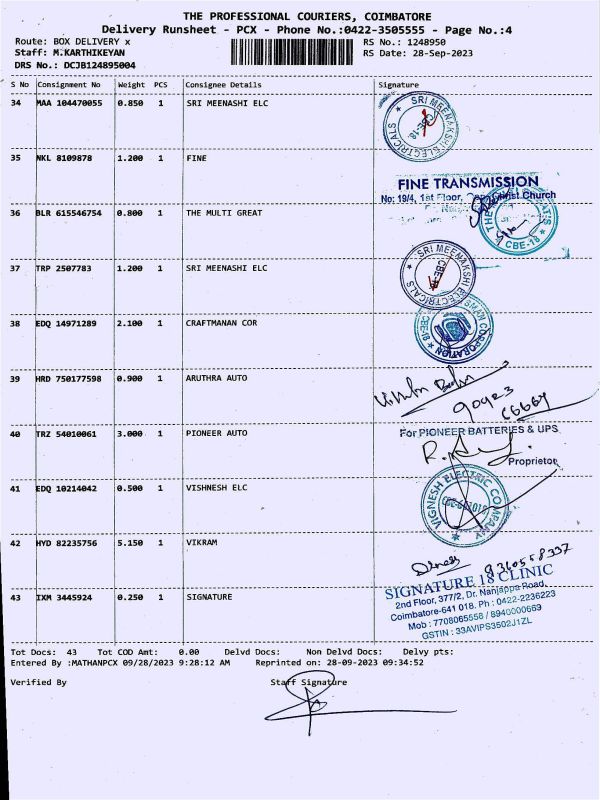 THE PROFESSIONAL COURIERS, COIMBATORE
Delivery Runsheet - PCX - Phone No.:0422-3505555 - Page No.:4
Route: BOX DELIVERY x RS No.: 1248950
Staff: M.KARTHIKEYAN RS Date: 28-Sep-2023
DRS No.: DCJB124895004
S No Consignment No Weight PCS Consignee Details Signature
34 MAA 104470055 0.850 1 SRI MEENASHI ELC
SRI MEENAKSHI ELECTRICALS
CBE-18
35 NKL 8109878 1.200 1 FINE
FINE TRANSMISSION
No: 19/4, 1st Floor, Christ Church
36 BLR 615546754 0.800 1 THE MULTI GREAT
CBE-18
37 TRP 2507783 1.200 1 SRI MEENASHI ELC
SRI MEENAKSHI ELECTRICALS
CBE-18
38 EDQ 14971289 2.100 1 CRAFTMANAN COR
CORPORATION
CBE-18
39 HRD 750177598 0.900 1 ARUTHRA AUTO
90923
40 TRZ 54010061 3.000 1 PIONEER AUTO
For PIONEER BATTERIES & UPS
Proprietor
41 EDQ 10214042 0.500 1 VISHNESH ELC
VIGNESH ELECTRIC COMPANY
42 HYD 82235756 5.150 1 VIKRAM
Dinesh 9360558337
43 IXM 3445924 0.250 1 SIGNATURE
SIGNATURE 18 CLINIC
2nd Floor, 377/2, Dr. Nanjappa Road,
Coimbatore-641 018. Ph : 0422-2236223
Mob : 7708065558 / 8940000669
GSTIN : 33AVIPS3502J1ZL
Tot Docs: 43 Tot COD Amt: 0.00 Delvd Docs: Non Delvd Docs: Delvy pts:
Entered By :MATHANPCX 09/28/2023 9:28:12 AM Reprinted on: 28-09-2023 09:34:52
Verified By Staff Signature